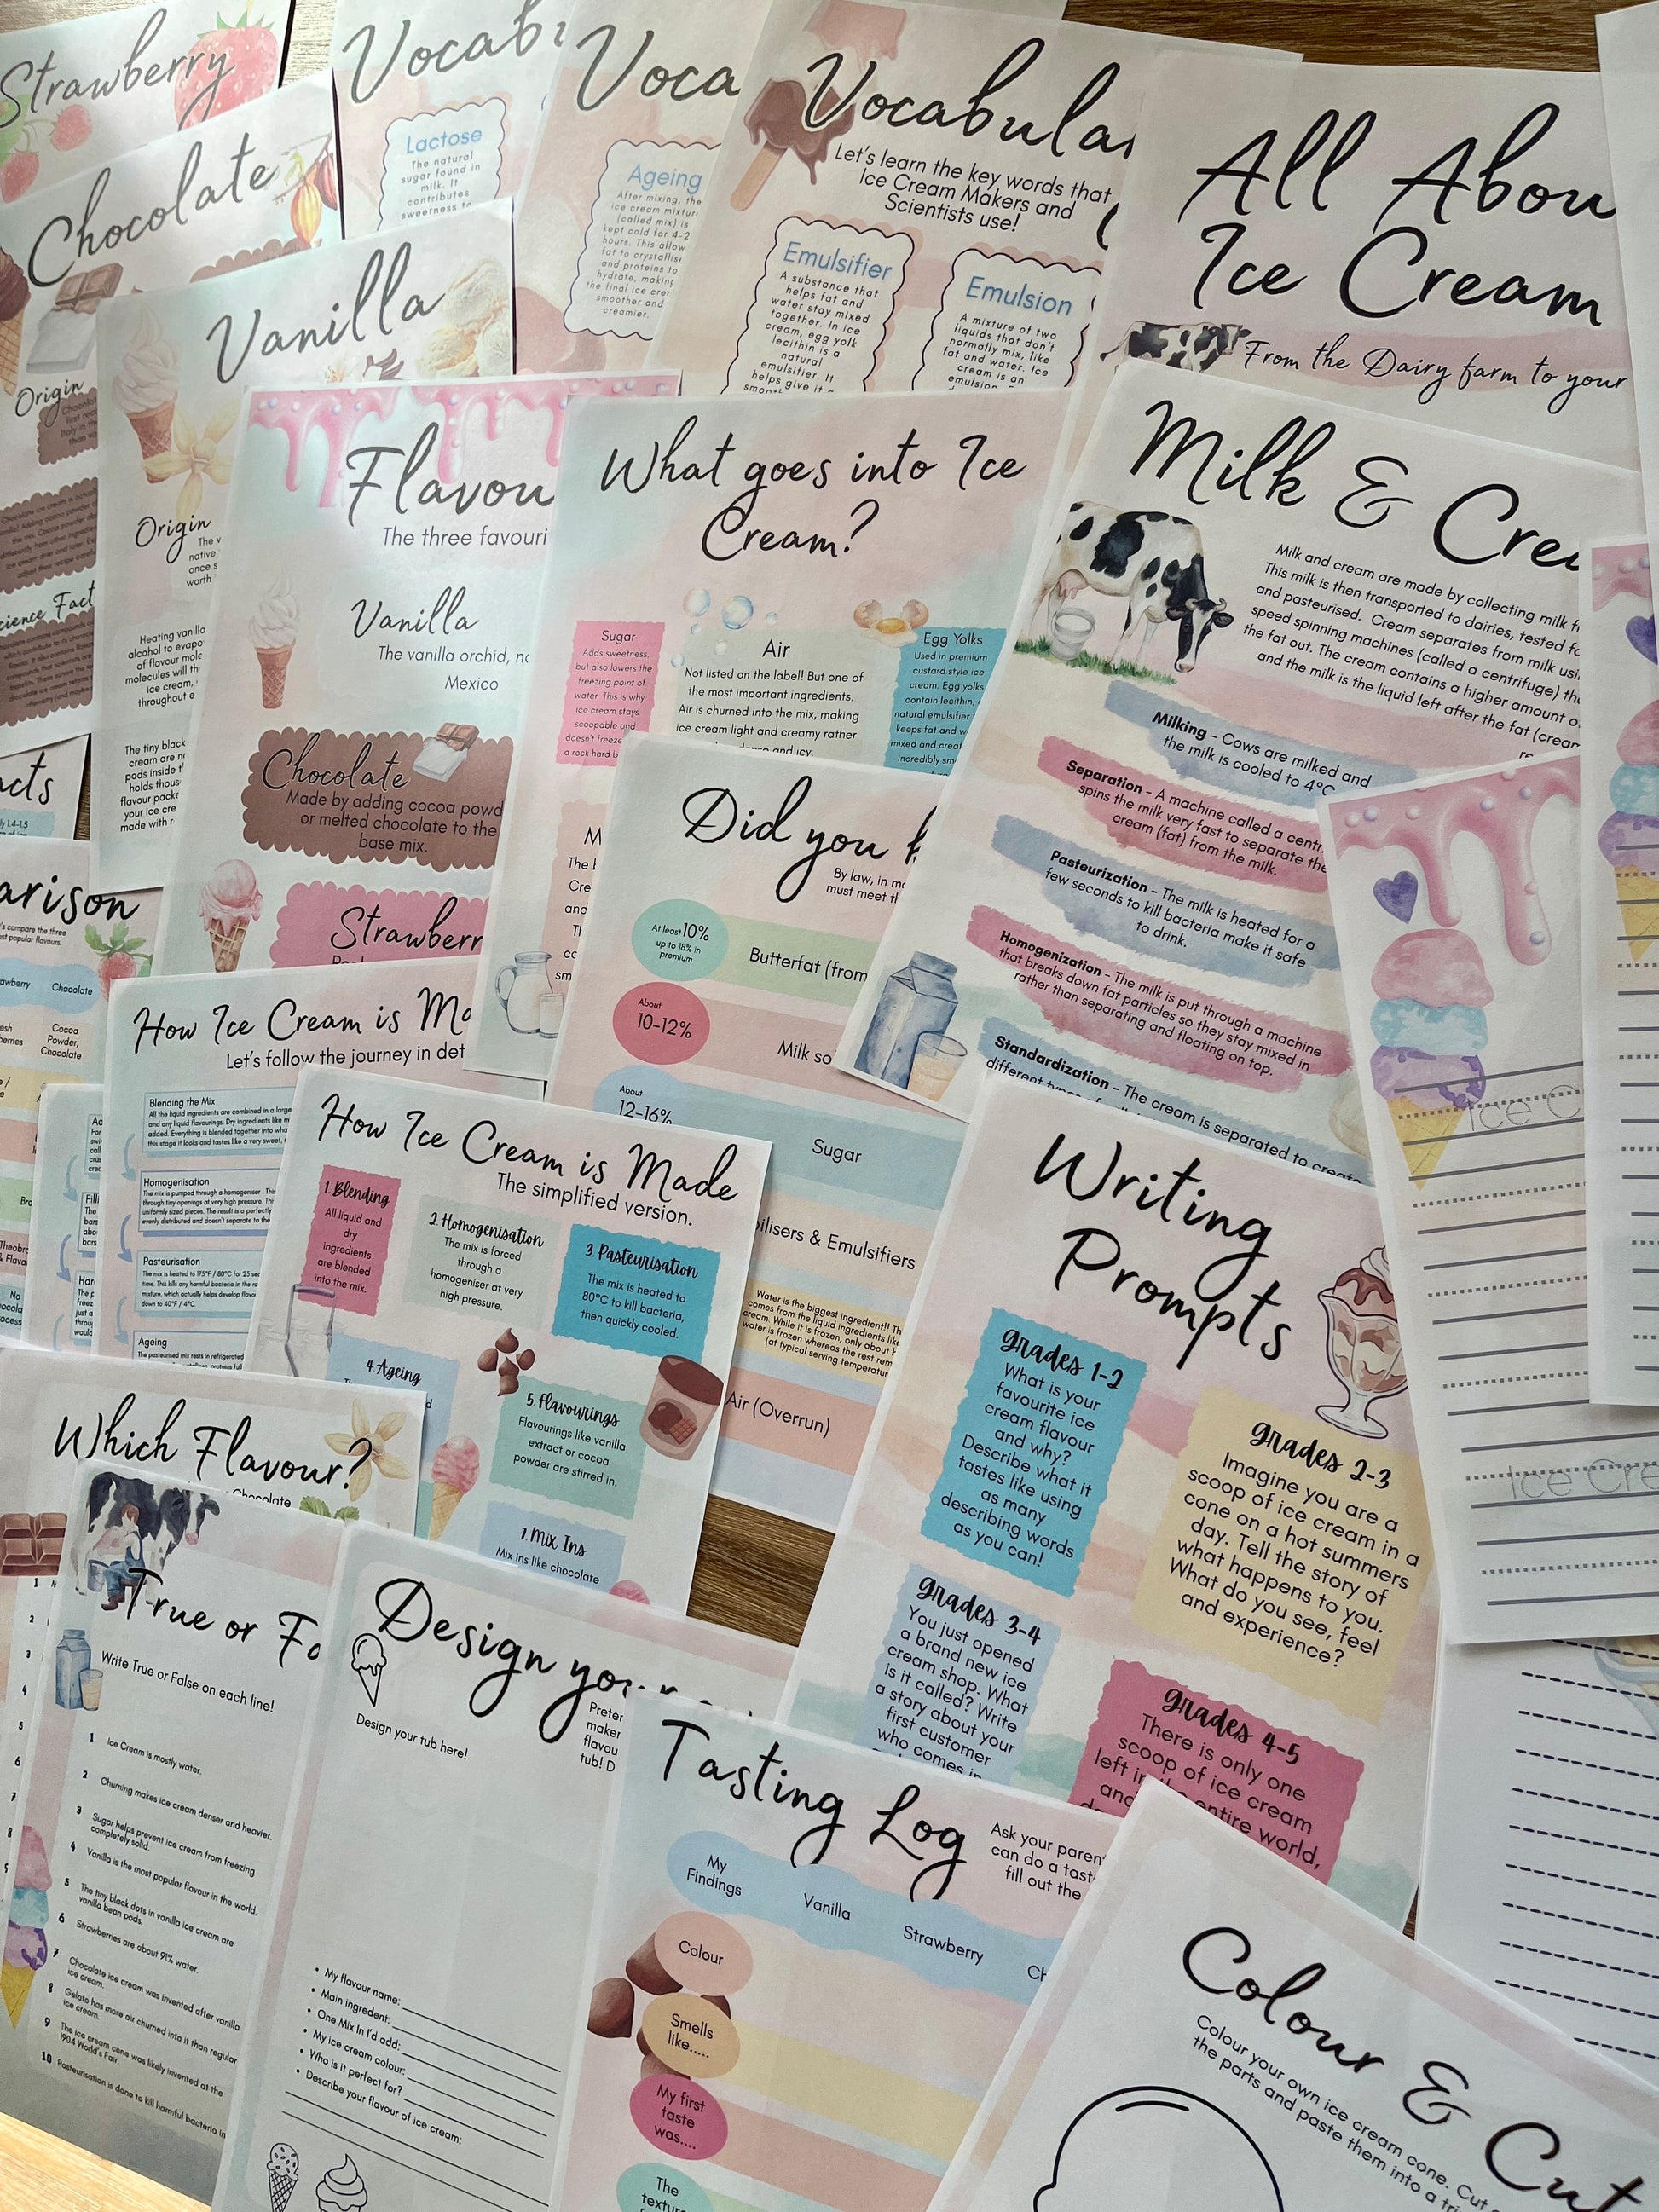 Strawberry
Chocolate
Origin
Vocab
Lactose
The natural
sugar found in
milk. It
contributes
sweetness to
Voca
Ageing
After mixing, the
ice cream mixture
(called mix) is
kept cold for 4-2
hours. This allow
fat to crystallise
and proteins to
hydrate, making
the final ice crea
smoother and
creamier.
Vocabular
Let's learn the key words that
Ice Cream Makers and
Scientists use!
Emulsifier
A substance that
helps fat and
water stay mixed
together. In ice
cream, egg yolk
lecithin is a
natural
emulsifier. It
helps give it
Emulsion
A mixture of two
liquids that don't
normally mix, like
fat and water. Ice
cream is an
emulsion
All Abou
Ice Cream
From the Dairy farm to your
Vanilla
Origin
The v
native
once s
worth
Heating vanilla
alcohol to evapo
of flavour mole
molecules will th
ice cream,
throughout e
The tiny black
cream are n
pods inside t
holds thous
flavour packe
your ice cre
made with r
Flavou
The three favouri
Vanilla
The vanilla orchid, na
Mexico
Chocolate
Made by adding cocoa powd
or melted chocolate to the
base mix.
Strawberr
What goes into Ice
Cream?
Sugar
Adds sweetness,
but also lowers the
freezing point of
water. This is why
ice cream stays
scoopable and
doesn't freeze
a rock hard b
Air
Not listed on the label! But one of
the most important ingredients.
Air is churned into the mix, making
ice cream light and creamy rather
dense and icy.
Egg Yolks
Used in premium
custard style ice
cream. Egg yolks
contain lecithin,
natural emulsifier
keeps fat and w
mixed and creat
incredibly sm
Milk & Crea
Milk and cream are made by collecting milk f
This milk is then transported to dairies, tested fo
and pasteurised. Cream separates from milk usi
speed spinning machines (called a centrifuge) th
the fat out. The cream contains a higher amount o
and the milk is the liquid left after the fat (cream
Milking - Cows are milked and
the milk is cooled to 4°C
Separation - A machine called a centr
spins the milk very fast to separate the
cream (fat) from the milk.
Pasteurization - The milk is heated for a
few seconds to kill bacteria make it safe
to drink.
Homogenization - The milk is put through a machine
that breaks down fat particles so they stay mixed in
rather than separating and floating on top.
Standardization - The cream is separated to create
Did you k
By law, in m
must meet th
At least 10%
up to 18% in
premium
Butterfat (from
About
10-12%
Milk so
About
12-16%
Sugar
bilisers & Emulsifiers
Water is the biggest ingredient!! Th
comes from the liquid ingredients like
cream. While it is frozen, only about
water is frozen whereas the rest rem
(at typical serving temperatur
Air (Overrun)
acts
arison
's compare the three
st popular flavours.
awberry
Chocolate
Cocoa
Powder,
Chocolate
How Ice Cream is Ma
Let's follow the journey in det
Blending the Mix
All the liquid ingredients are combined in a large
and any liquid flavourings. Dry ingredients like m
added. Everything is blended together into wha
this stage it looks and tastes like a very sweet,
Homogenisation
The mix is pumped through a homogeniser. Thi
through tiny openings at very high pressure. Thi
uniformly sized pieces. The result is a perfectly
evenly distributed and doesn't separate to the
Pasteurisation
The mix is heated to 175°F / 80°C for 25 sec
time. This kills any harmful bacteria in the ra
mixture, which actually helps develop flavou
down to 40°F / 4°C.
Ageing
The pasteurised mix rests in refrigerated
How Ice Cream is Made
The simplified version.
1. Blending
All liquid and
dry
ingredients
are blended
into the mix.
2. Homogenisation
The mix is forced
through a
homogeniser at very
high pressure.
3. Pasteurisation
The mix is heated to
80°C to kill bacteria,
then quickly cooled.
4. Ageing
5. Flavourings
Flavourings like vanilla
extract or cocoa
powder are stirred in.
7. Mix Ins
Mix ins like chocolate
Writing
Prompts
Grades 1-2
What is your
favourite ice
cream flavour
and why?
Describe what it
tastes like using
as many
describing words
as you can!
Grades 2-3
Imagine you are a
scoop of ice cream in a
cone on a hot summers
day. Tell the story of
what happens to you.
What do you see, feel
and experience?
Grades 3-4
You just opened
a brand new ice
cream shop. What
is it called? Write
a story about your
first customer
who comes in
Grades 4-5
There is only one
scoop of ice cream
left in the entire world,
Ice C
Ice Cre
Which Flavour?
Chocolate
True or Fa
Write True or False on each line!
1 Ice Cream is mostly water.
2 Churning makes ice cream denser and heavier.
3 Sugar helps prevent ice cream from freezing
completely solid.
4 Vanilla is the most popular flavour in the world.
5 The tiny black dots in vanilla ice cream are
vanilla bean pods.
6 Strawberries are about 91% water.
7 Chocolate ice cream was invented after vanilla
ice cream.
8 Gelato has more air churned into it than regular
ice cream.
9 The ice cream cone was likely invented at the
1904 World's Fair.
10 Pasteurisation is done to kill harmful bacteria in
Design your
Design your tub here!
Preter
maker
flavou
tub! D
• My flavour name:
• Main ingredient:
• One Mix In I'd add:
• My ice cream colour:
• Who is it perfect for?
• Describe your flavour of ice cream:
Tasting Log
Ask your paren
can do a tast
fill out the
My
Findings
Vanilla
Strawberry
Ch
Colour
Smells
like.....
My first
taste
was....
The
texture
Colour & Cut
Colour your own ice cream cone. Cut
the parts and paste them into a tri